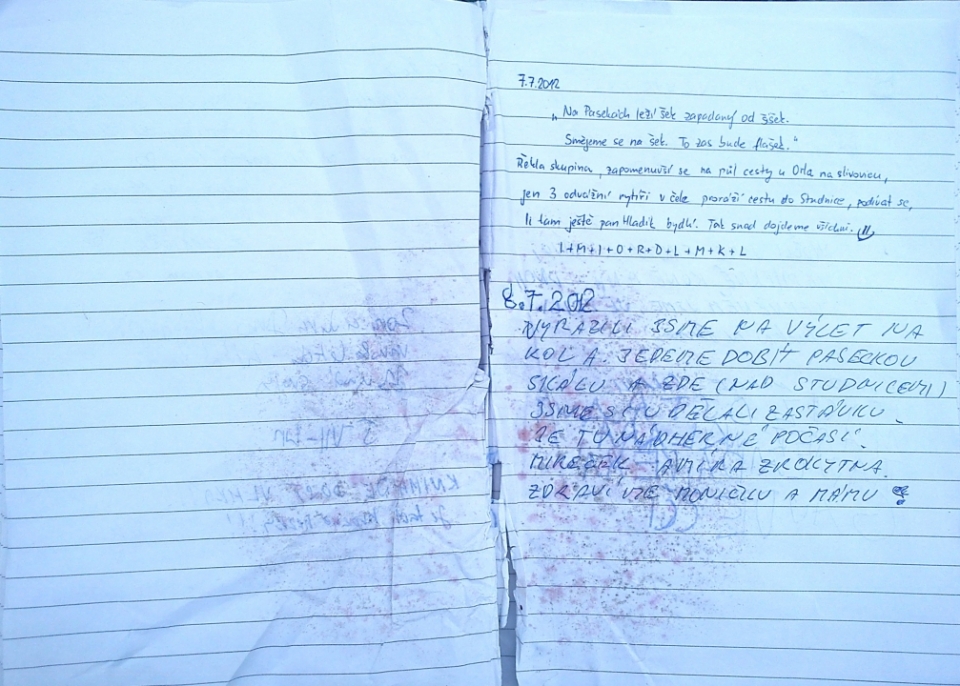 7.7.2012
„Na Pasekách leží šek zapadaný od šišek.
Smějeme se na šek. To zas bude flašek."
Řekla skupina, zapomenuvší se na půl cesty u Orla na slivovicu,
jen 3 odvážní rytíři v čele proráží cestu do Studnice, podívat se,
li tam ještě pan Hladík bydlí. Tak snad dojdeme všichni.
I+M+I+O+R+D+L+M+K+L
8.7.2012
VYRAZILI JSME NA VÝLET NA
KOLA. JEDEME DOBÍT PASECKOU
SKÁLU A ZDE (NAD STUDNICEMI)
JSME SI UDĚLALI ZASTÁVKU.
JE TU NÁDHERNÉ POČASÍ.
MIREČEK A MÍRA Z ROKYTNA.
ZDRAVÍME MONIČKU A MÁMU